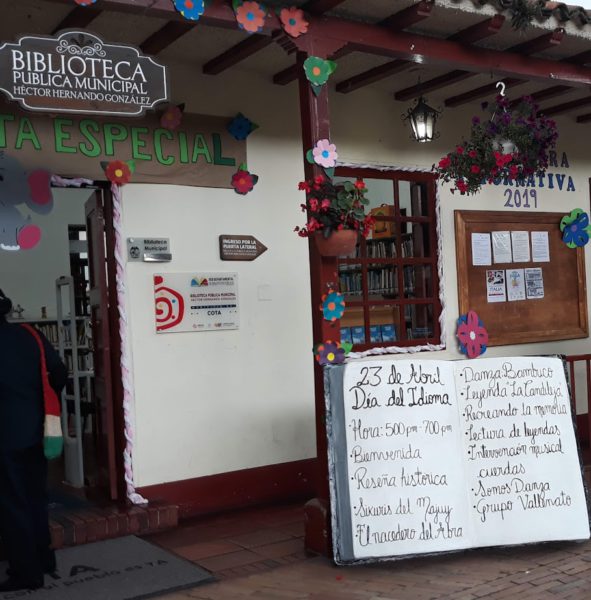 BIBLIOTECA
PÚBLICA MUNICIPAL
HÉCTOR HERNANDO GONZÁLEZ
TA ESPECIAL
Biblioteca
Municipal
INGRESO POR LA
PUERTA LATERAL
BIBLIOTECA PÚBLICA MUNICIPAL
HÉCTOR HERNANDO GONZÁLEZ
COTA
RA
NFORMATIVA
2019
ITALIA
23 de Abril
Día del Idioma
Hora: 500 pm - 700 pm
• Bienvenida
• Reseña historica
• Sixuris del Majuy
El nacedero del Abra
• Danza Bambuco
• Leyenda "La Candileja
• Recreando la memoria
• Lectura de leyendas
• Intervención musical
cuerdas
• Somos Danza
• Grupo Vallenato
COTA